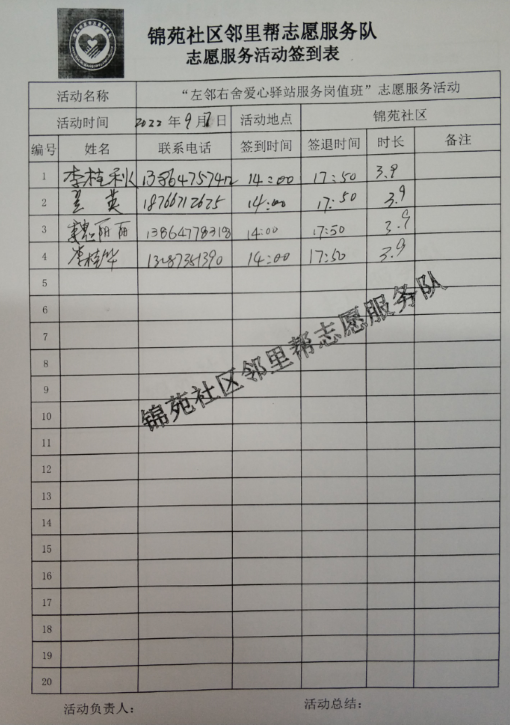 锦苑社区邻里帮志愿服务队
志愿服务活动签到表
活动名称 “左邻右舍爱心驿站服务岗值班”志愿服务活动
活动时间 2022年9月 日 活动地点 锦苑社区
编号 姓名 联系电话 签到时间 签退时间 时长 备注
1 李桂秋 14:00 17:50 3.9
2 英 18766712675 14:00 17:50 3.9
3 魏丽丽 13864778318 14:00 17:50 3.9
4 李桂 14:00 17:50 3.9
5
6
7
8
9
10
11
12
13
14
15
16
17
18
19
20
锦苑社区邻里帮志愿服务队
活动负责人： 活动总结：